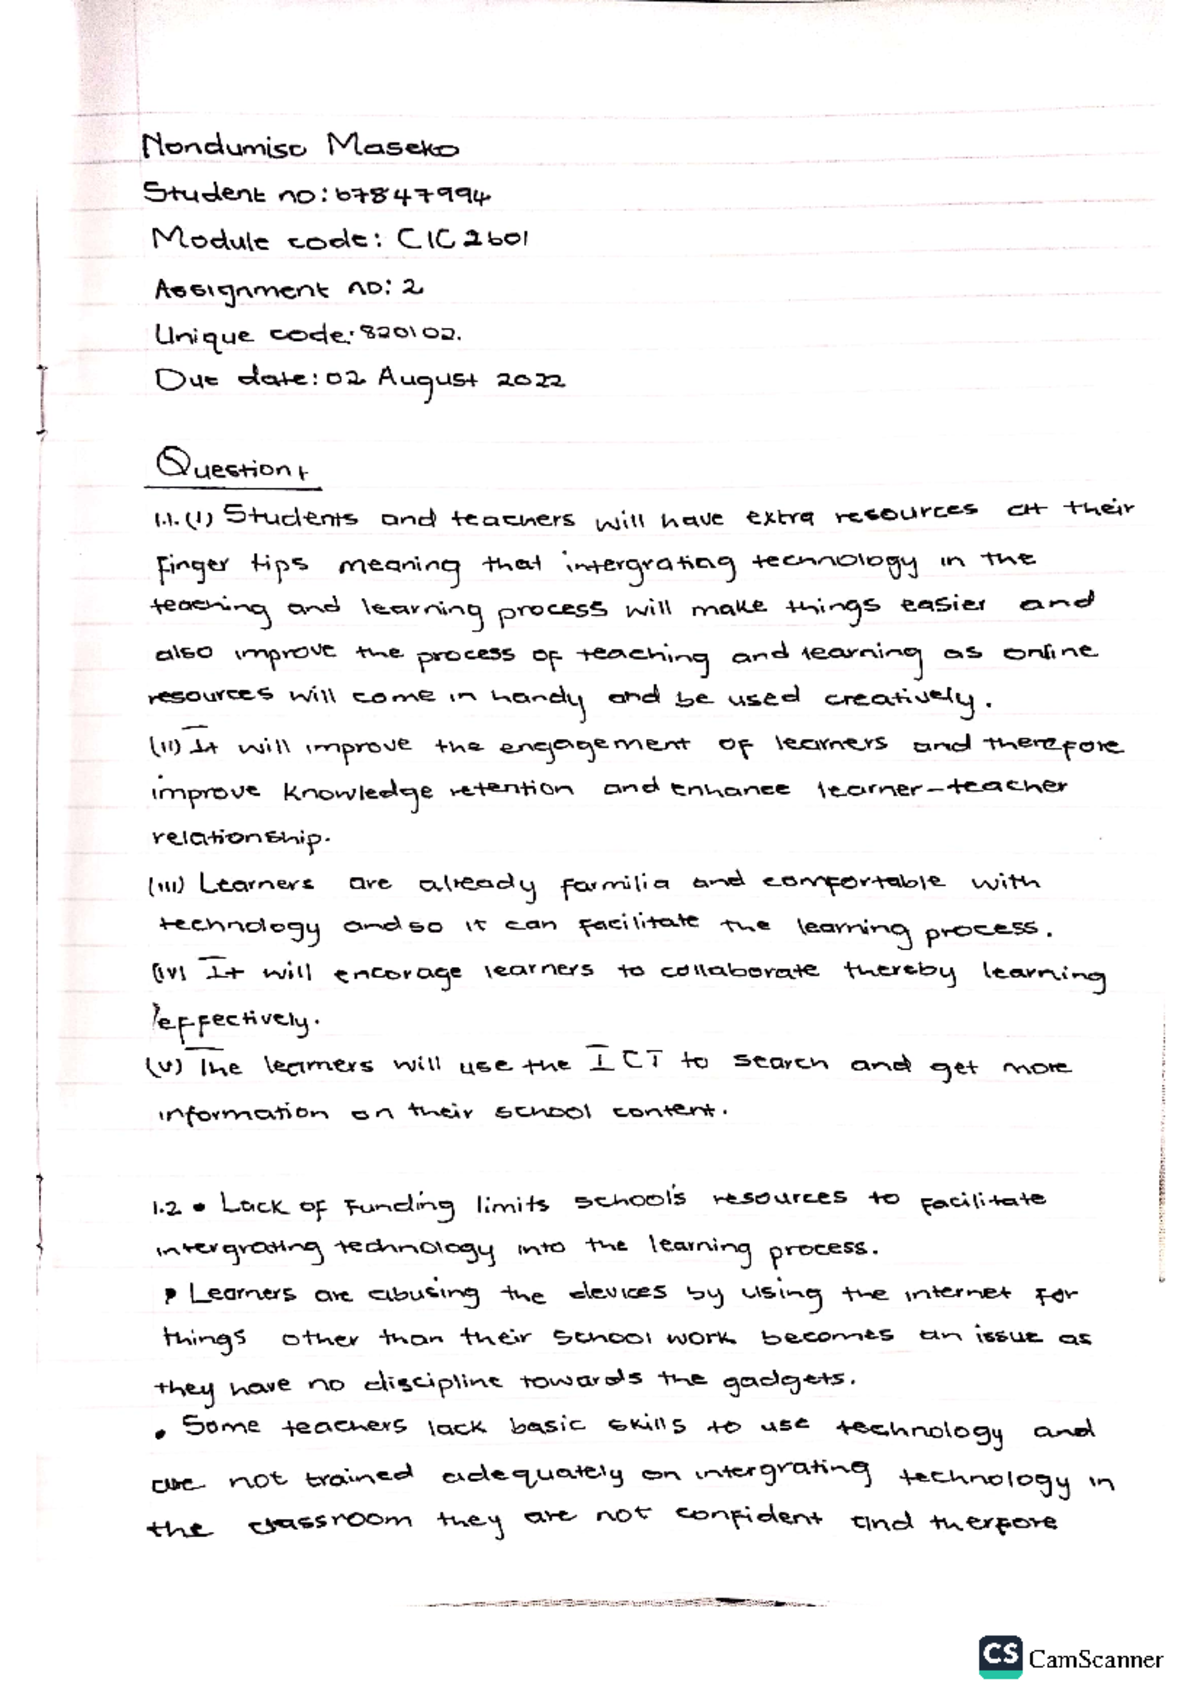 Nondumiso Maseko
Student no: 67847994
Module code: CIC2601
Assignment no: 2
Unique code: 820102.
Due date: 02 August 2022
Question 1
1.1. (i) Students and teachers will have extra resources at their
finger tips meaning that intergrating technology in the
teaching and learning process will make things easier and
also improve the process of teaching and learning as online
resources will come in handy and be used creatively.
(ii) It will improve the engagement of learners and therefore
improve knowledge retention and enhance learner-teacher
relationship.
(iii) Learners are already farmilia and comfortable with
technology and so it can facilitate the learning process.
(iv) It will encorage learners to collaborate thereby learning
effectively.
(v) The learners will use the ICT to search and get more
information on their school content.
1.2 • Lack of Funding limits school's resources to facilitate
intergrating technology into the learning process.
• Learners are abusing the devices by using the internet for
things other than their school work becomes an issue as
they have no discipline towards the gadgets.
• Some teachers lack basic skills to use technology and
are not trained adequately on intergrating technology in
the classroom they are not confident and therfore
CS CamScanner